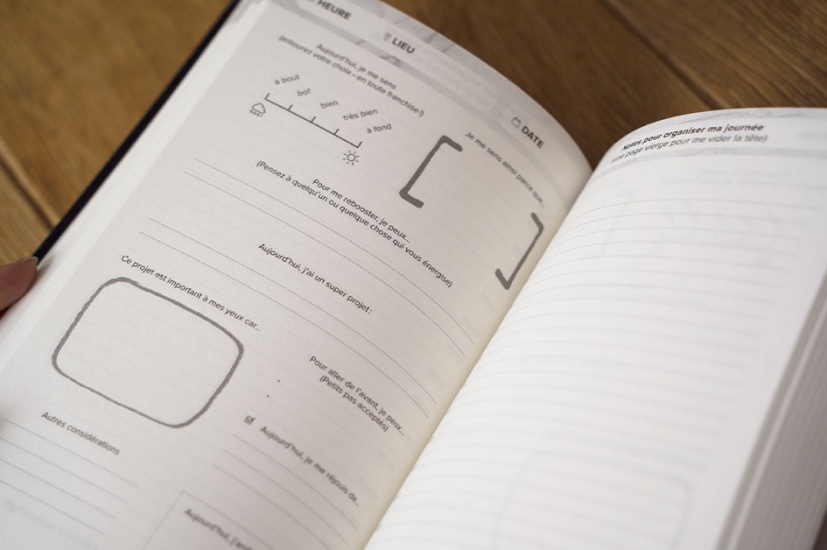 HEURE
LIEU
DATE
Aujourd'hui, je me sens
(entourez votre choix – en toute franchise !)
à bout
bof
bien
très bien
à fond
Je me sens ainsi parce que...
Pour me rebooster, je peux...
(Pensez à quelqu'un ou quelque chose qui vous énergise)
Aujourd'hui, j'ai un super projet :
Ce projet est important à mes yeux car...
Pour aller de l'avant, je peux...
(Petits pas acceptés)
Autres considérations
Aujourd'hui, je me réjouis de...
Aujourd'hui, j'
Notes pour organiser ma journée
(une page vierge pour me vider la tête)